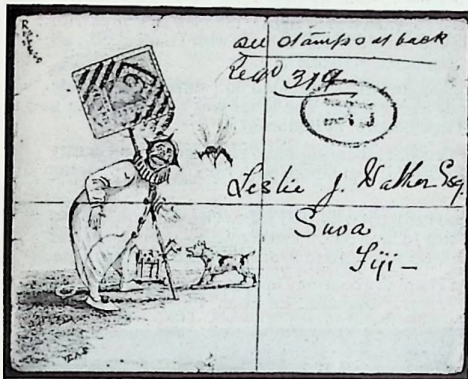 see stamps at back
Regd 319
R
Leslie J. Walker Esq
Suva
Fiji -